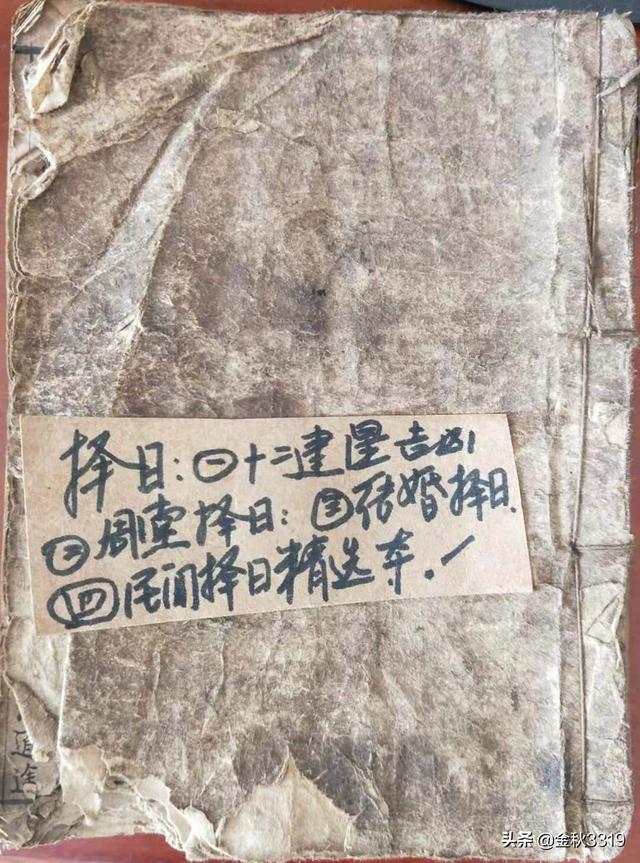 择日:㊀十二建星吉凶
㊁周堂择日:㊂结婚择日.
㊃民间择日精选本.
追逢
头条@金秋3319